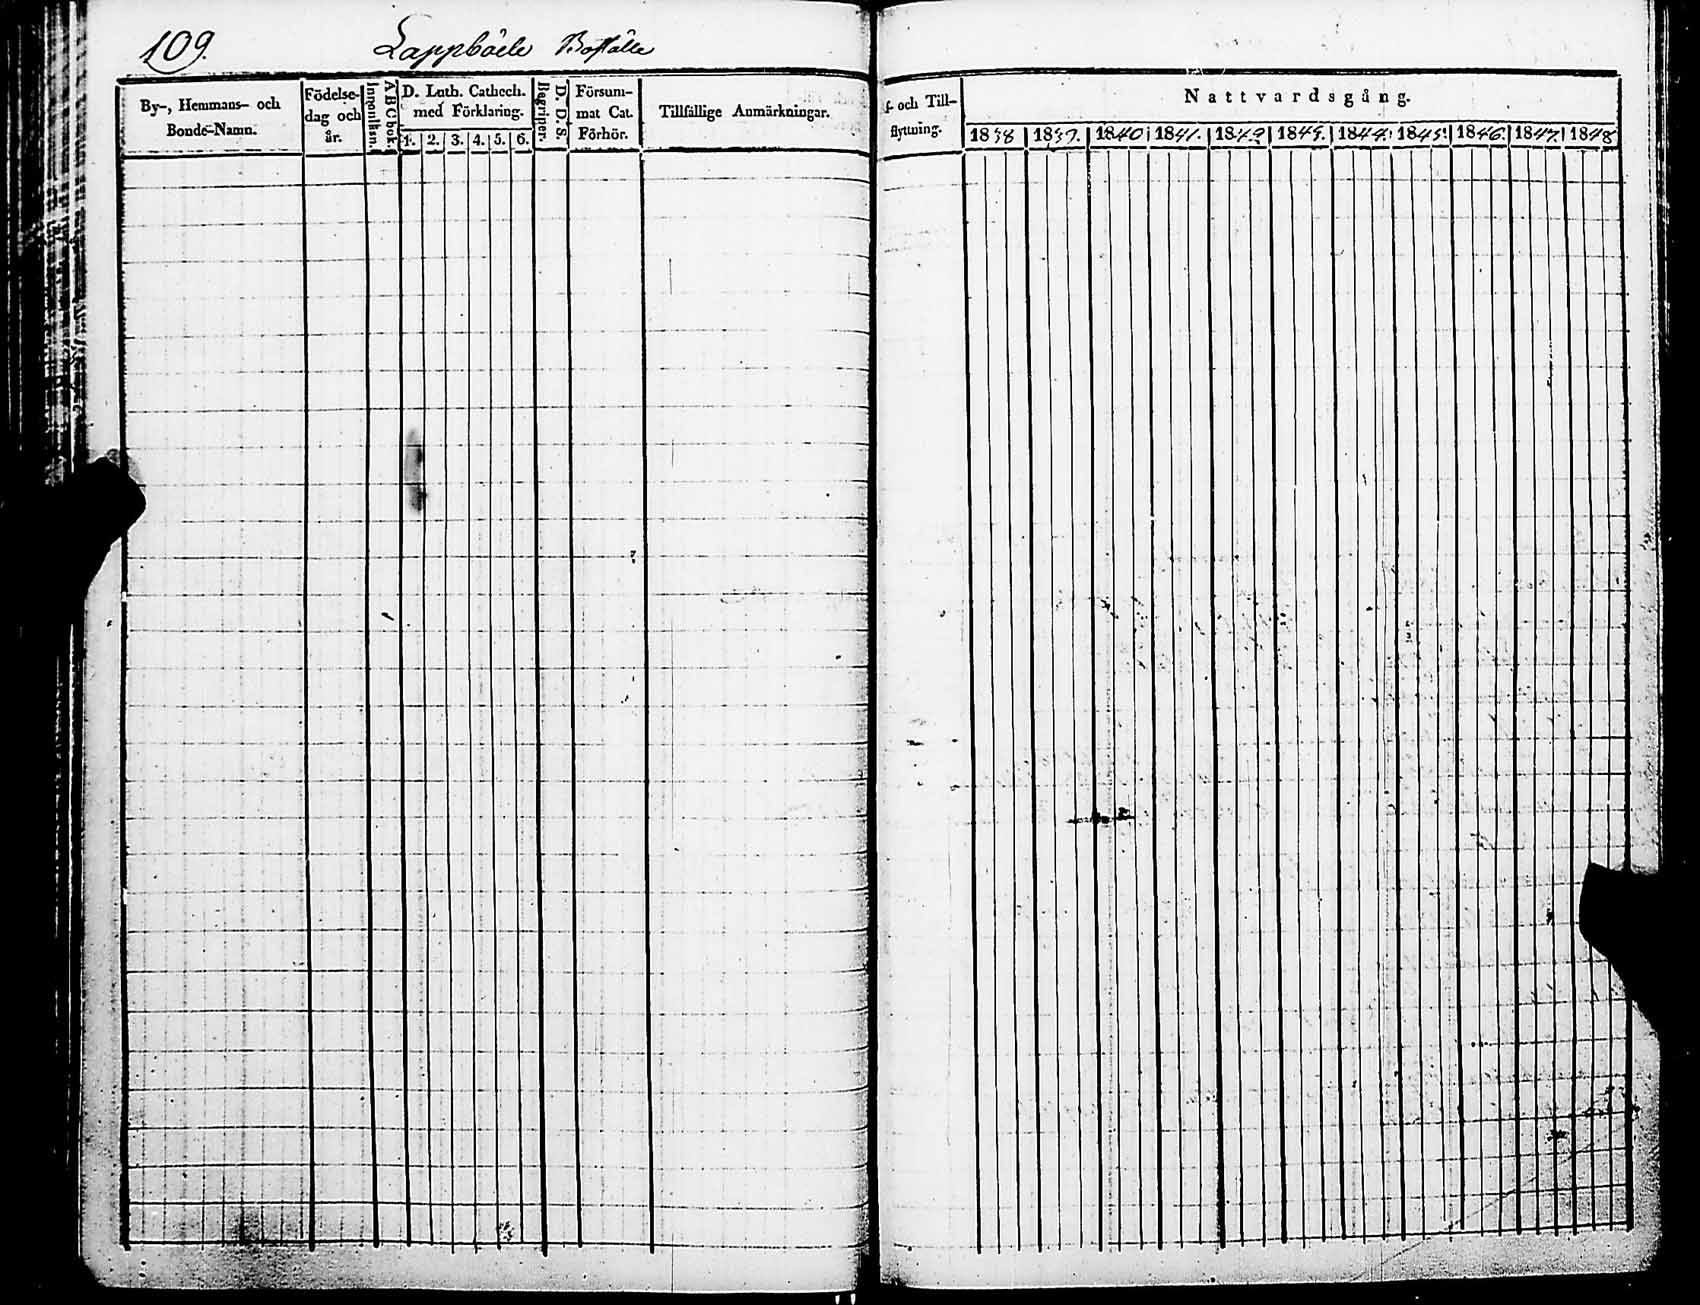 109. Lappböle Boställe
By-, Hemmans- och
Bonde-Namn.
Födelse-
dag och
år.
Innanläsn.
A B C bok.
D. Luth. Cathech.
med Förklaring.
1. 2. 3. 4. 5. 6.
Begriper.
D. D. S.
Försum-
mat Cat.
Förhör.
Tillfällige Anmärkningar.
f. och Till-
flyttning.
Nattvardsgång.
1838 1839. 1840 1841. 1842 1843. 1844. 1845. 1846. 1847. 1848